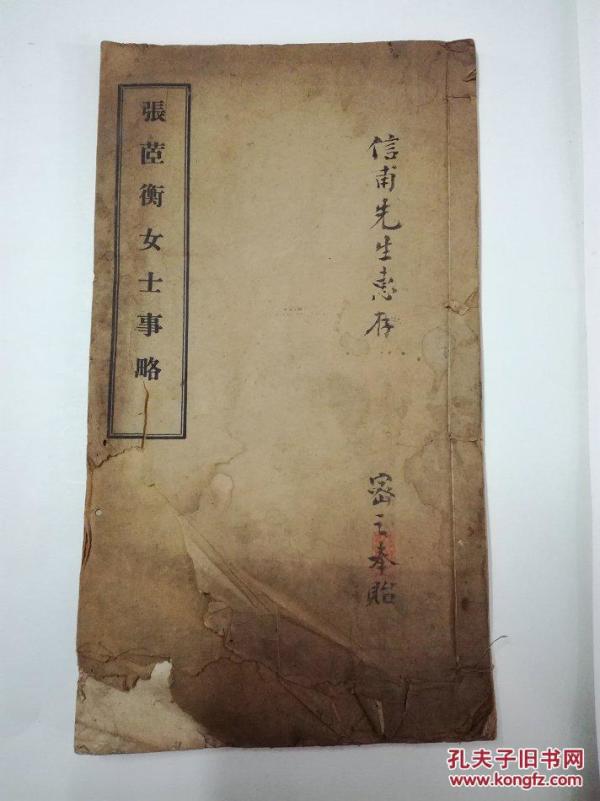 信甫先生惠存
密之奉貽
張茝衡女士事略
孔夫子旧书网
www.kongfz.com